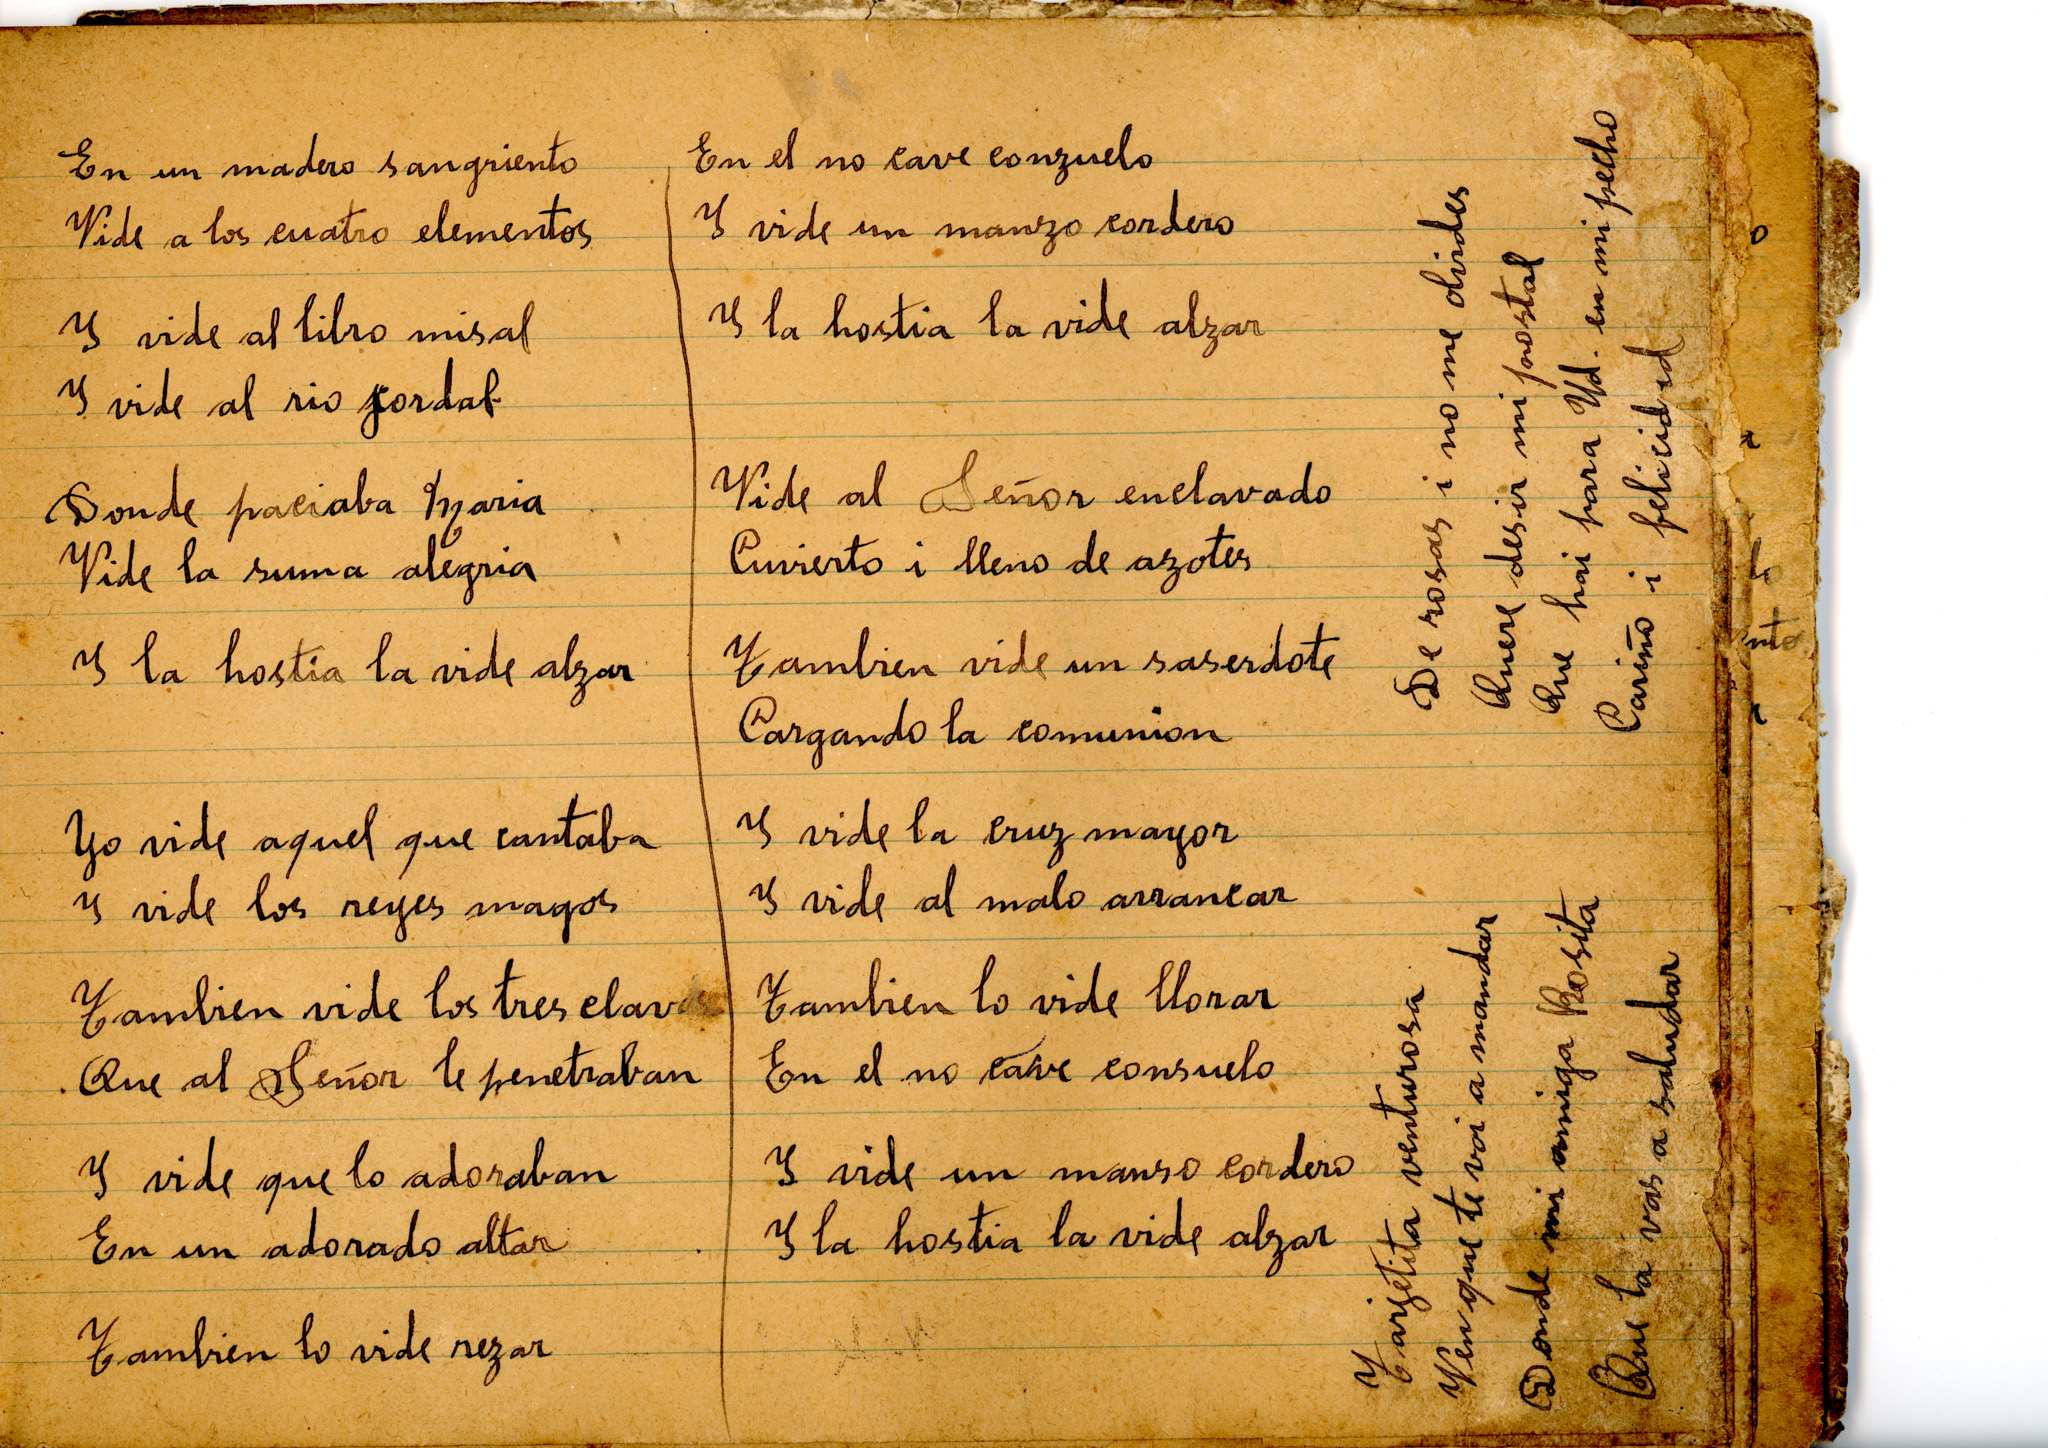 En un madero sangriento
Vide a los cuatro elementos
Y vide al libro misal
Y vide al rio jordal
Donde paciaba Maria
Vide la suma alegria
Y la hostia la vide alzar
Yo vide aquel que cantaba
Y vide los reyes magos
Tambien vide los tres clavos
Que al Señor le penetraban
Y vide que lo adoraban
En un adorado altar
Tambien lo vide rezar
En el no cave conzuelo
Y vide un manzo cordero
Y la hostia la vide alzar
Vide al Señor enclavado
Cuvierto i lleno de azotes
Tambien vide un saserdote
Cargando la comunion
Y vide la cruz mayor
Y vide al malo arrancar
Tambien lo vide llorar
En el no cave consuelo
Y vide un manso cordero
Y la hostia la vide alzar
Tarjetita venturosa
Ven que te voi a mandar
Donde mi amiga Rosita
Que la vas a saludar
De rosas i no me olvides
Quere desir mi postal
Que hai para Ud. en mi pecho
Cariño i felicidad